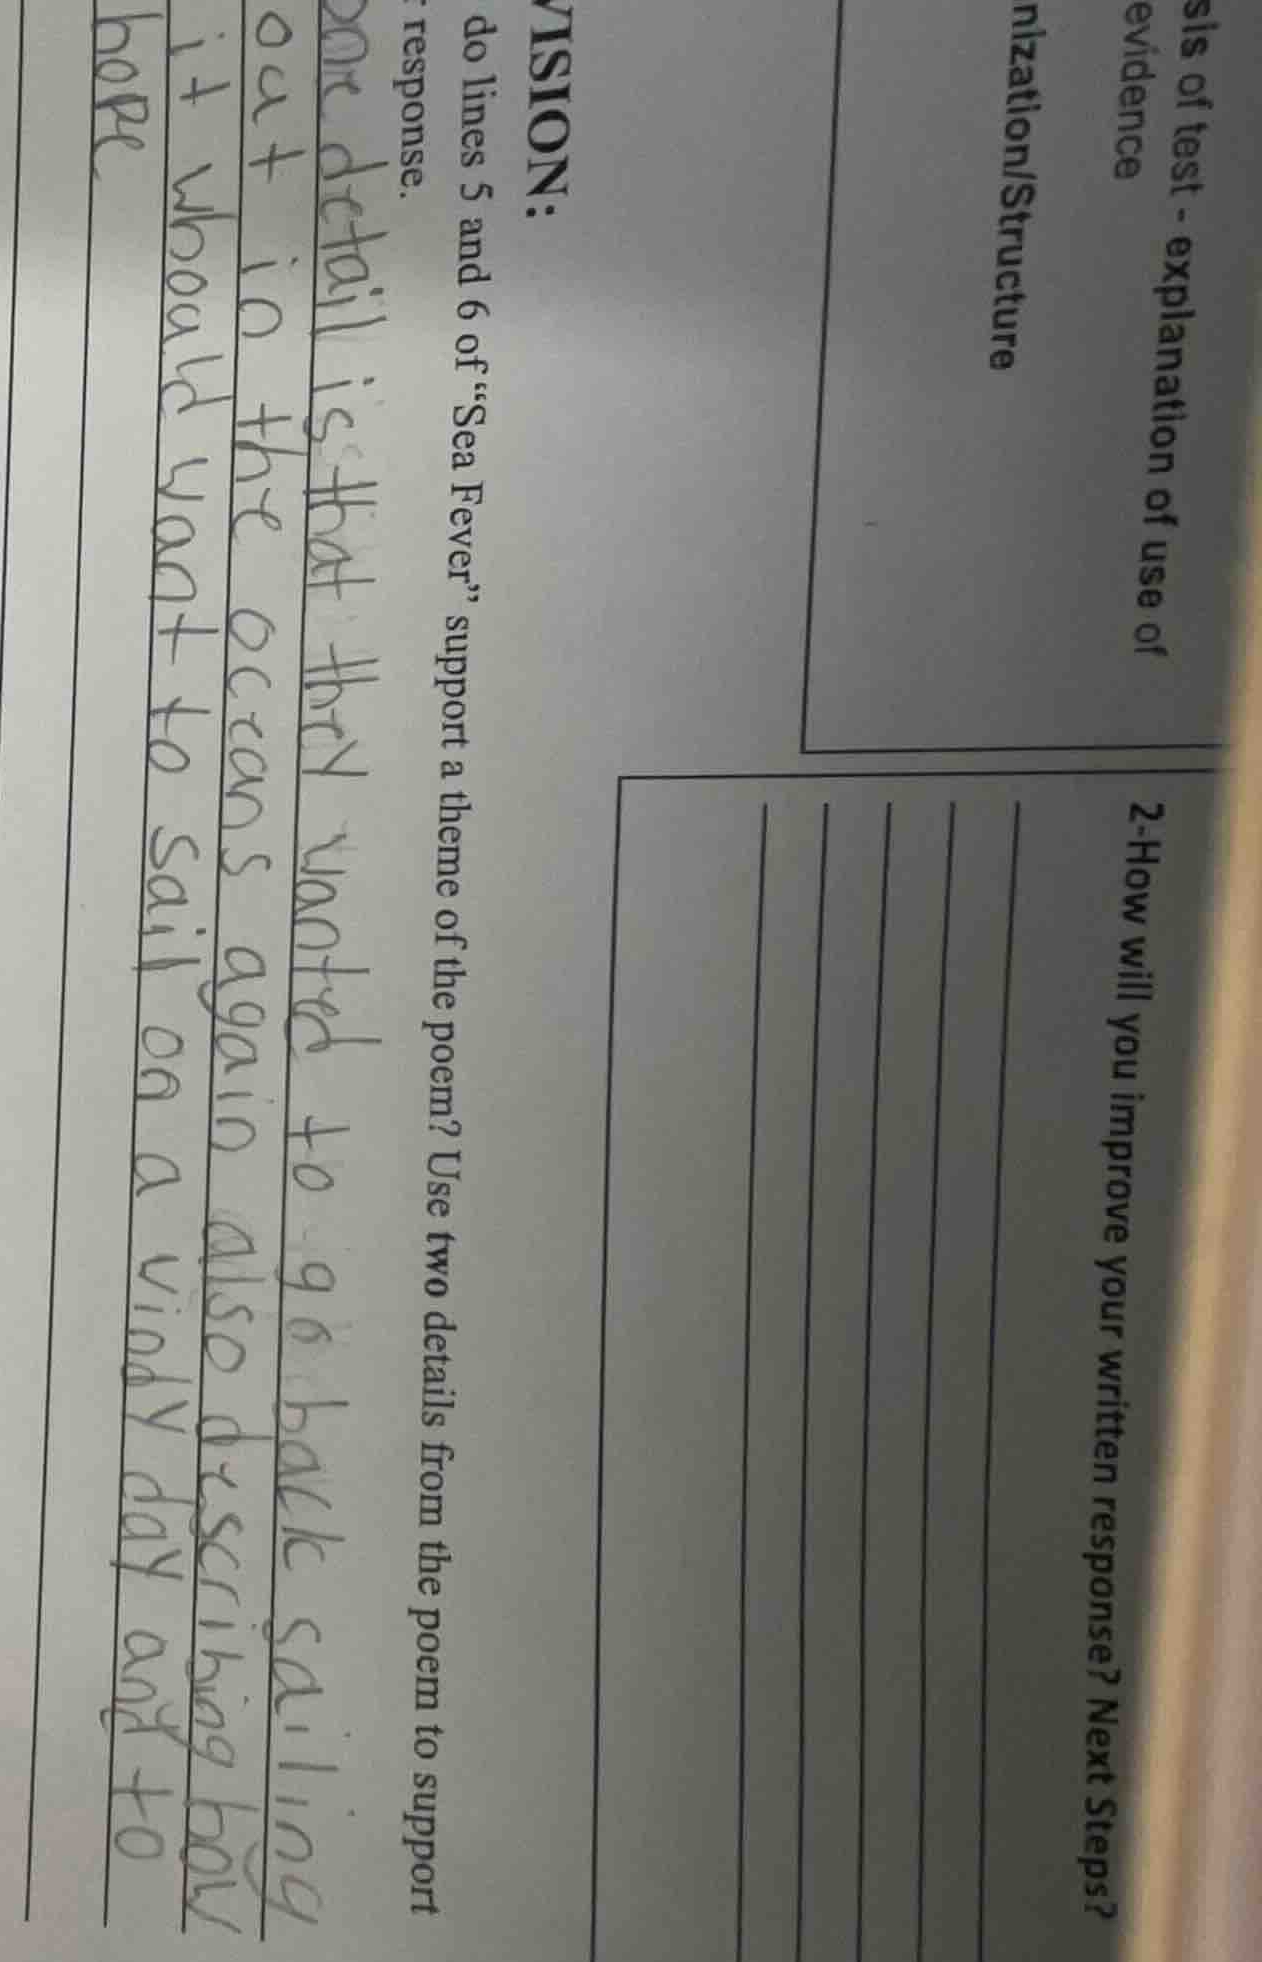 sis of test - explanation of use of
evidence
nization/Structure
2-How will you improve your written response? Next Steps?
VISION:
do lines 5 and 6 of “Sea Fever” support a theme of the poem? Use two details from the poem to support
r response.
one detail is that they wanted to go back sailing
out in the oceans again also describing how
it whould want to sail on a windy day and to
hope